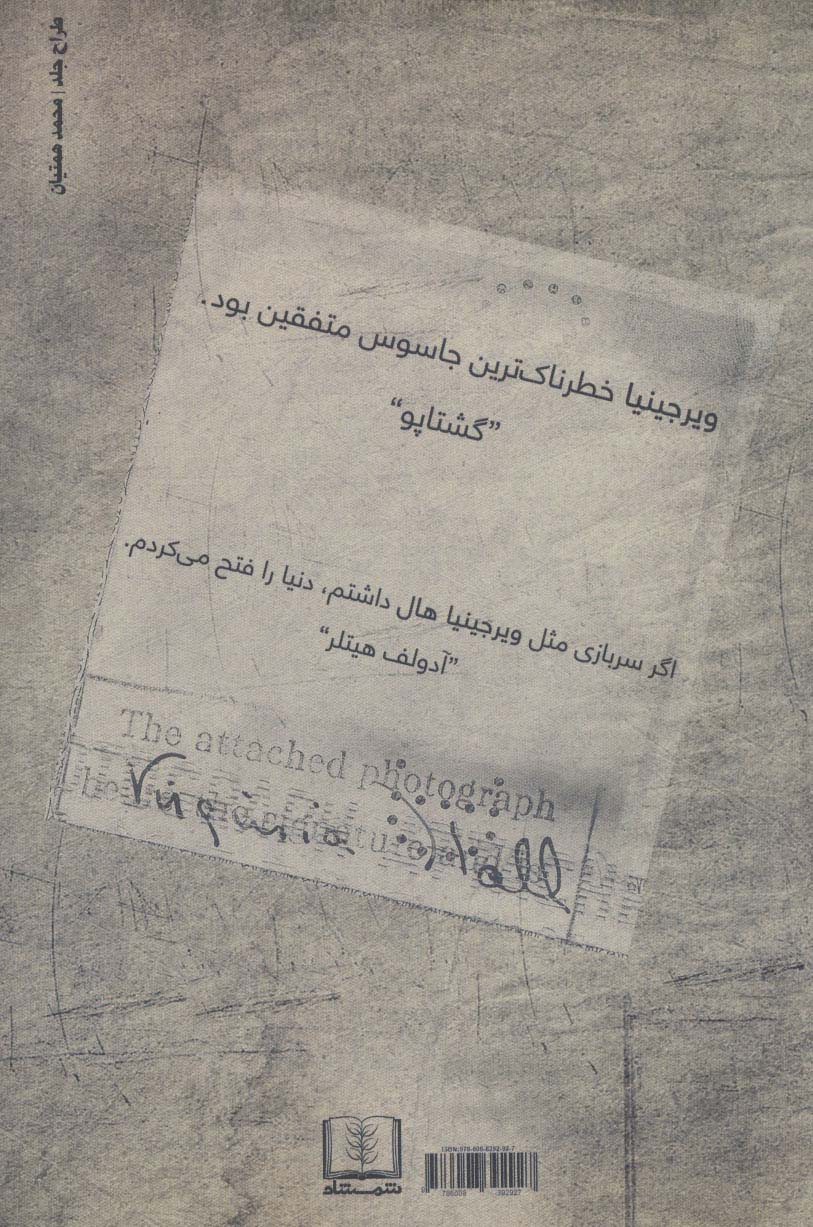 طراح جلد | محمد همتیان
ویرجینیا خطرناک‌ترین جاسوس متفقین بود.
”گشتاپو“
اگر سربازی مثل ویرجینیا هال داشتم، دنیا را فتح می‌کردم.
”آدولف هیتلر“
The attached photograph
be signature
Virginia Hall
شمشاد
ISBN:978-600-8392-92-7
9 786008 392927